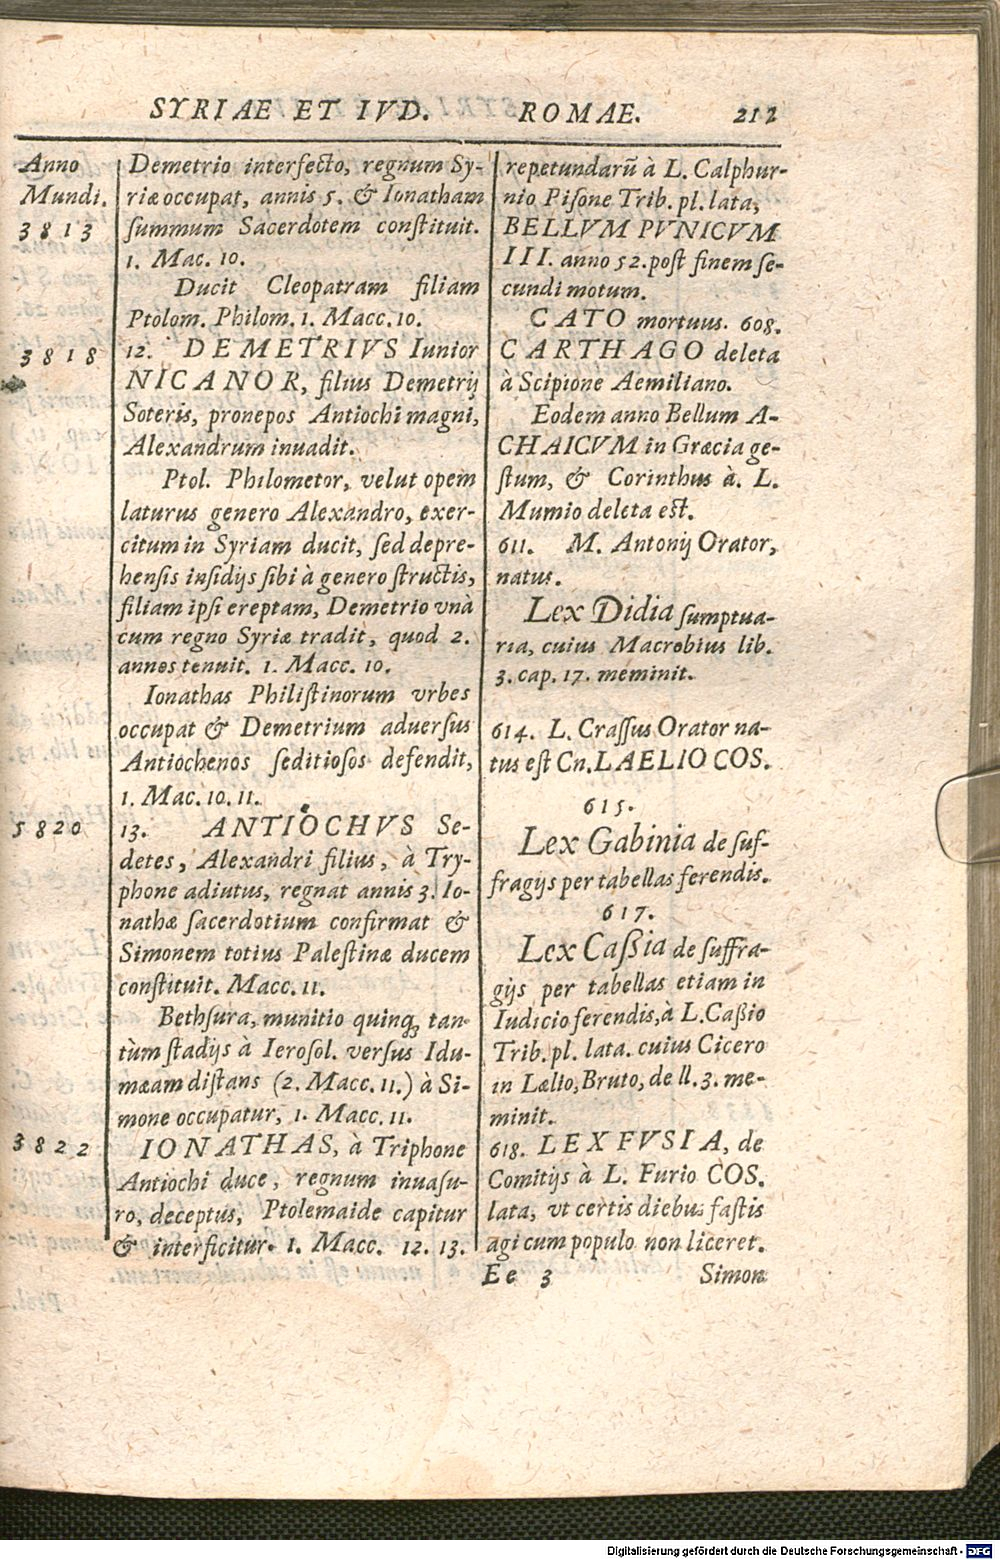 SYRIAE ET IVD. ROMAE. 212
Anno
Mundi.
3813
Demetrio interfecto, regnum Sy-
riæ occupat, annis 5. & Ionatham
summum Sacerdotem constituit.
1. Mac. 10.
Ducit Cleopatram filiam
Ptolom. Philom. 1. Macc. 10.
3818
12. DEMETRIVS Iunior
NICANOR, filius Demetrij
Soteris, pronepos Antiochi magni,
Alexandrum inuadit.
Ptol. Philometor, velut opem
laturus genero Alexandro, exer-
citum in Syriam ducit, sed depre-
hensis insidijs sibi à genero structis,
filiam ipsi ereptam, Demetrio vnà
cum regno Syriæ tradit, quod 2.
annos tenuit. 1. Macc. 10.
Ionathas Philistinorum vrbes
occupat & Demetrium aduersus
Antiochenos seditiosos defendit,
1. Mac. 10. 11.
5820
13. ANTIOCHVS Se-
detes, Alexandri filius, à Try-
phone adiutus, regnat annis 3. Io-
nathæ sacerdotium confirmat &
Simonem totius Palestinæ ducem
constituit. Macc. 11.
Bethsura, munitio quinq; tan-
tùm stadijs à Ierosol. versus Idu-
mæam distans (2. Macc. 11.) à Si-
mone occupatur, 1. Macc. 11.
3822
IONATHAS, à Triphone
Antiochi duce, regnum inuasu-
ro, deceptus, Ptolemaide capitur
& interficitur. 1. Macc. 12. 13.
repetundarũ à L. Calphur-
nio Pisone Trib. pl. lata,
BELLVM PVNICVM
III. anno 52. post finem se-
cundi motum.
CATO mortuus. 608.
CARTHAGO deleta
à Scipione Aemiliano.
Eodem anno Bellum A-
CHAICVM in Græcia ge-
stum, & Corinthus à. L.
Mumio deleta est.
611. M. Antonij Orator,
natus.
Lex Didia sumptua-
ria, cuius Macrobius lib.
3. cap. 17. meminit.
614. L. Crassus Orator na-
tus est Cn. LAELIO COS.
615.
Lex Gabinia de suf-
fragijs per tabellas ferendis.
617.
Lex Cassia de suffra-
gijs per tabellas etiam in
Iudicio ferendis, à L. Cassio
Trib. pl. lata. cuius Cicero
in Lælio, Bruto, de ll. 3. me-
minit.
618. LEX FVSIA, de
Comitijs à L. Furio COS.
lata, vt certis diebus fastis
agi cum populo non liceret.
Ee 3 Simon
Digitalisierung gefördert durch die Deutsche Forschungsgemeinschaft - DFG